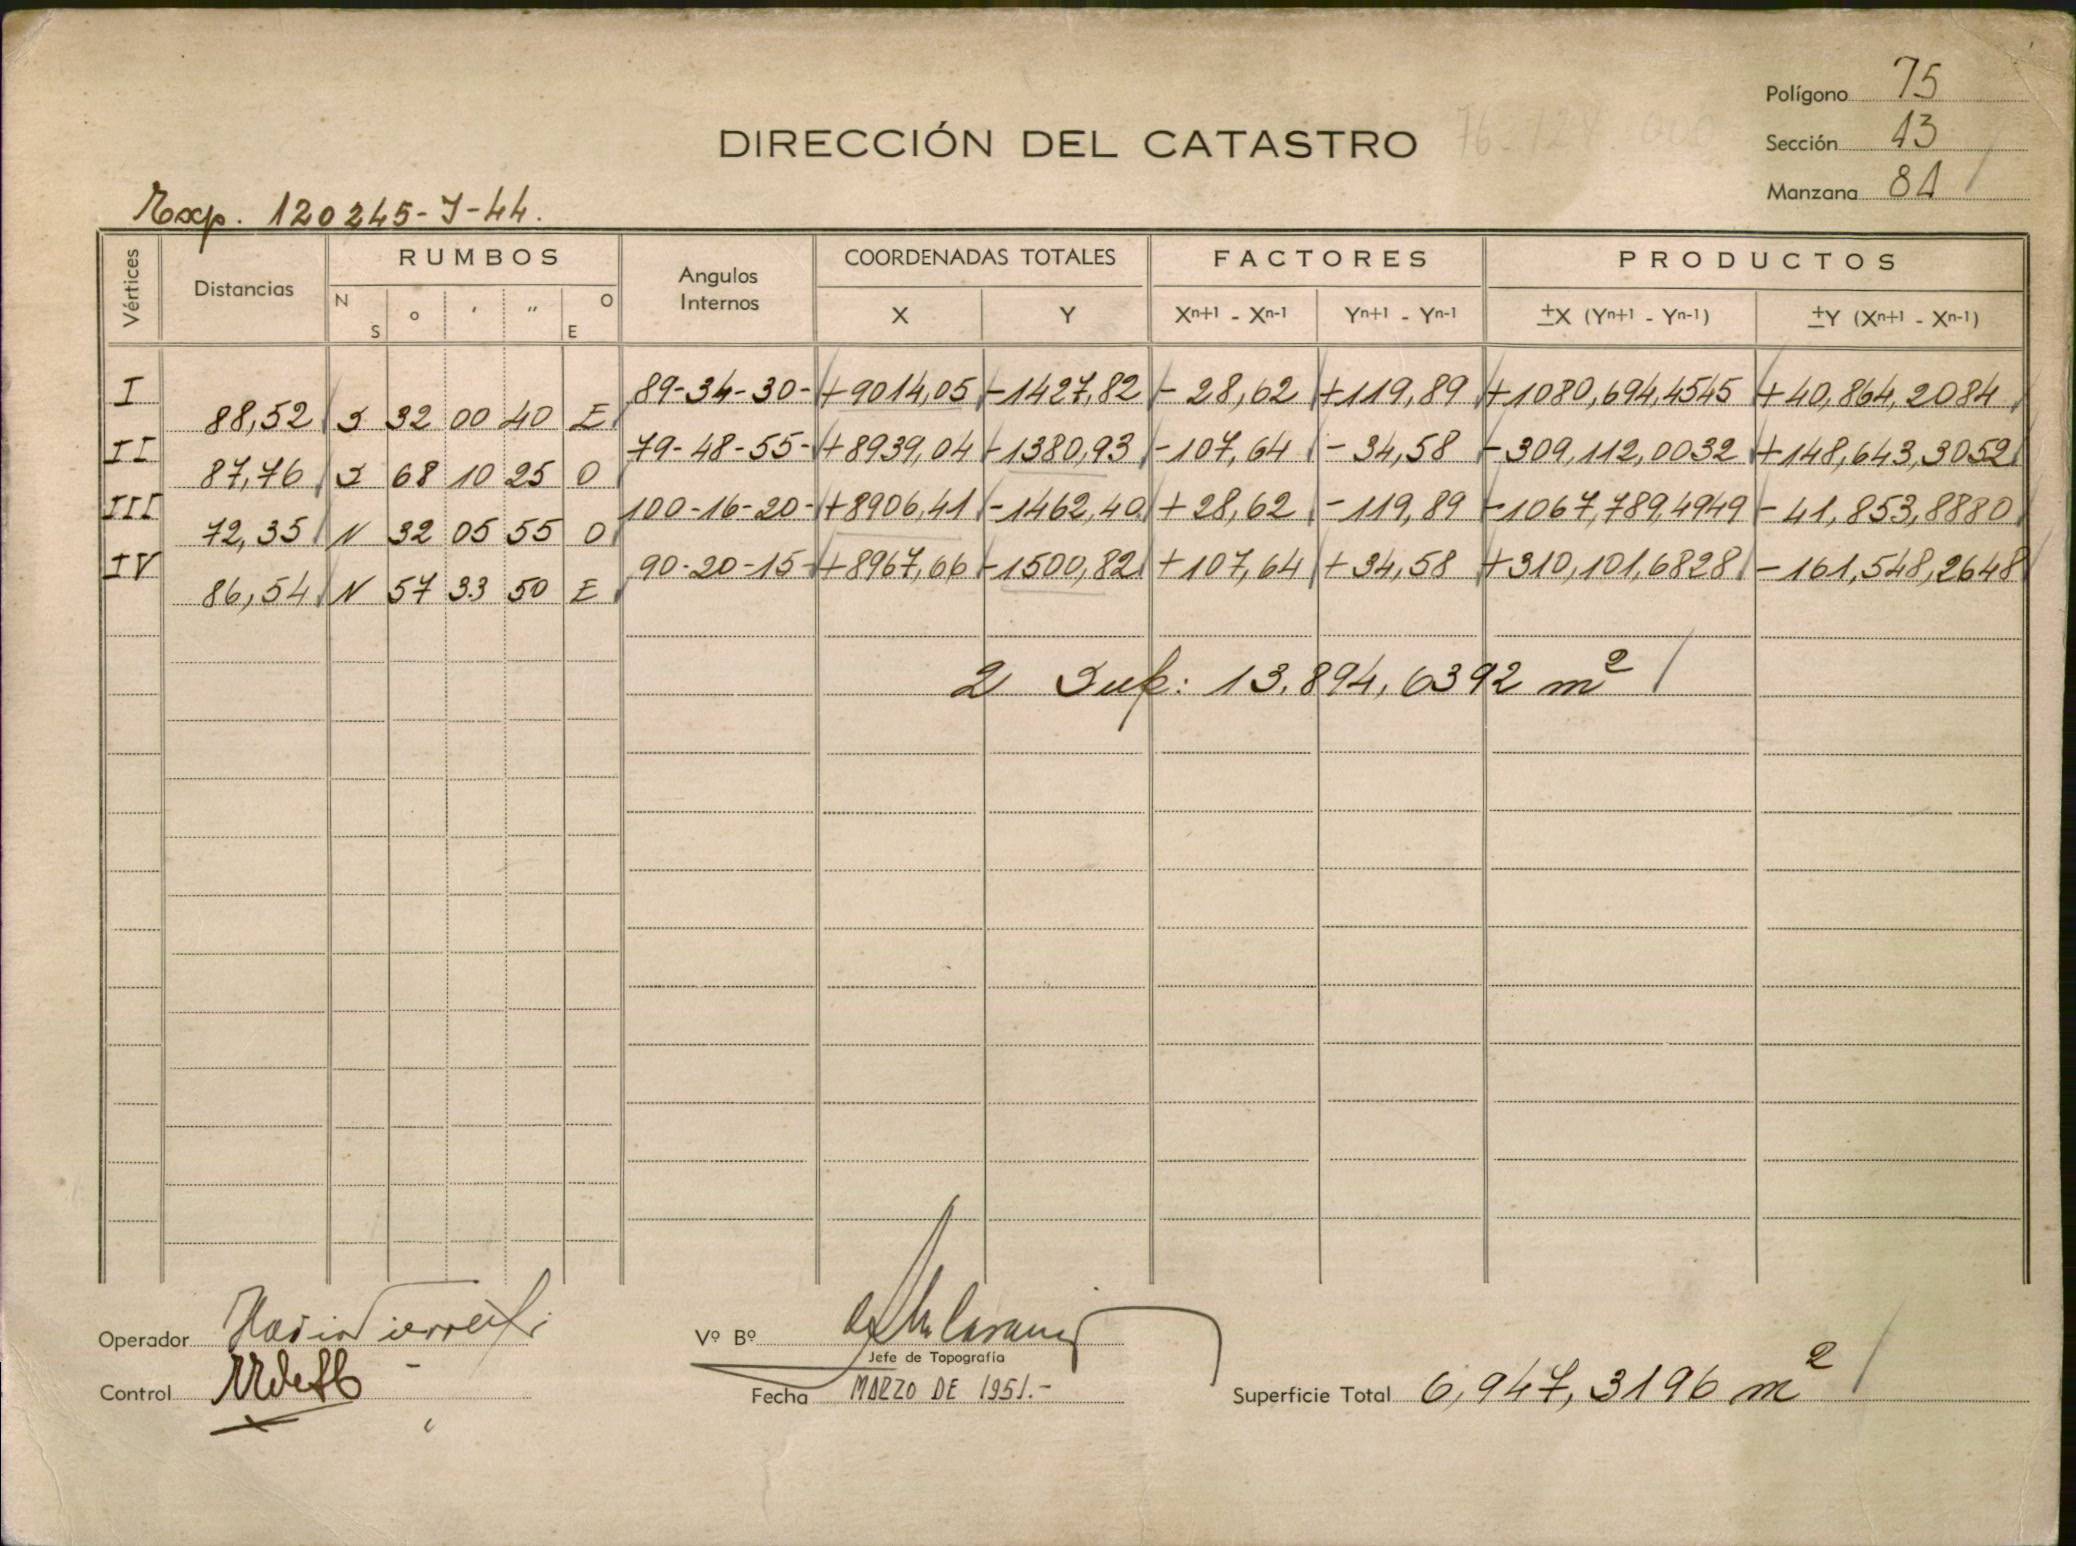 Polígono 75
DIRECCIÓN DEL CATASTRO
Sección 43
Manzana 81
Exp. 120245-J-44.
Vértices Distancias RUMBOS Angulos Internos COORDENADAS TOTALES FACTORES PRODUCTOS
N S o ' " O E X Y Xn+1 - Xn-1 Yn+1 - Yn-1 ±X (Yn+1 - Yn-1) ±Y (Xn+1 - Xn-1)
I 89-34-30- +9014,05 -1427,82 - 28,62 +119,89 +1080,694,4545 +40,864,2084
88,52 S 32 00 40 E
II 79-48-55- +8939,04 -1380,93 -107,64 - 34,58 -309,112,0032 +148,643,3052
87,76 S 68 10 25 O
III 100-16-20- +8906,41 -1462,40 +28,62 -119,89 -1067,789,4949 -41,853,8880
72,35 N 32 05 55 O
IV 90-20-15- +8967,66 -1500,82 +107,64 +34,58 +310,101,6828 -161,548,2648
86,54 N 57 33 50 E
2 Sup: 13.894,6392 m²
Operador
Vº Bº
Jefe de Topografía
Control
Fecha MARZO DE 1951.-
Superficie Total 6,947,3196 m²